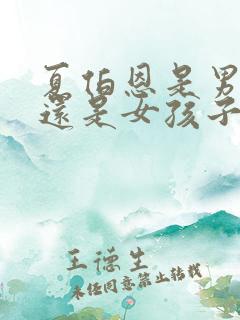 夏伯恩是男
還是女孩子
王德生
未经同意禁止转载